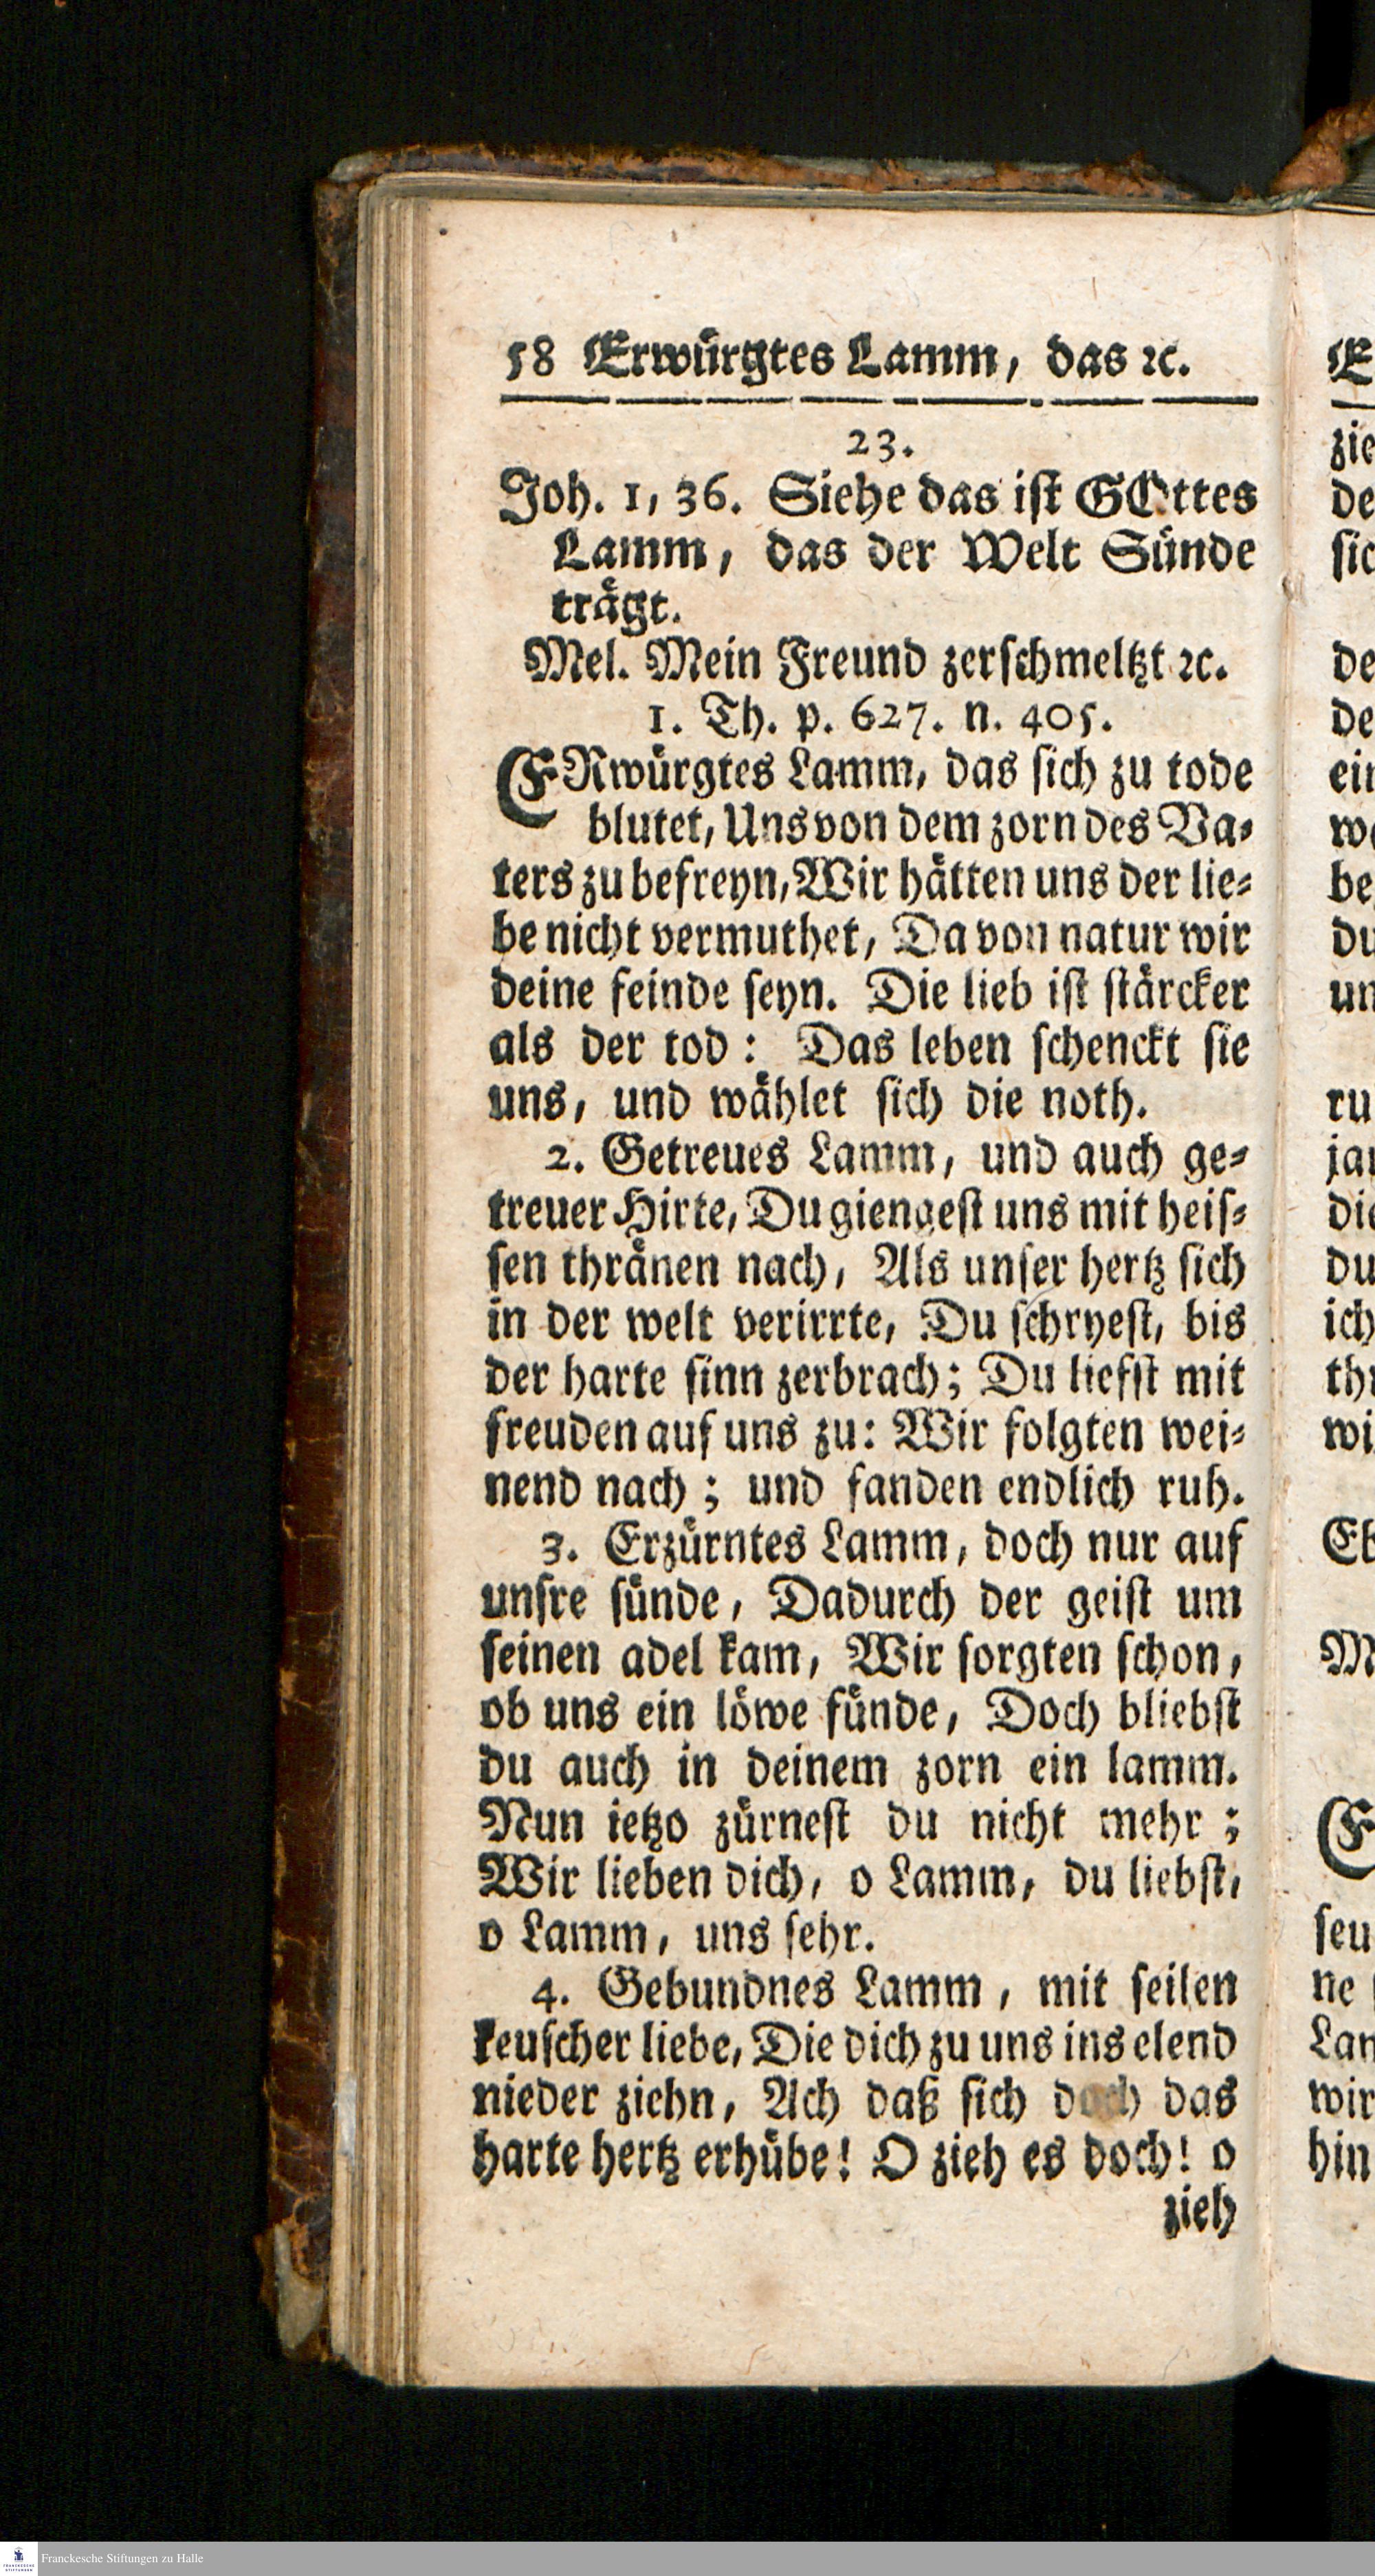 58 Erwürgtes Lamm, das ꝛc.
23.
Joh. 1, 36. Siehe das iſt GOttes
Lamm, das der Welt Sünde
trägt.
Mel. Mein Freund zerſchmeltzt ꝛc.
1. Th. p. 627. n. 405.
ERwürgtes Lamm, das ſich zu tode
blutet, Uns von dem zorn des Va⸗
ters zu befreyn, Wir hätten uns der lie⸗
be nicht vermuthet, Da von natur wir
deine feinde ſeyn. Die lieb iſt ſtärcker
als der tod: Das leben ſchenckt ſie
uns, und wählet ſich die noth.
2. Getreues Lamm, und auch ge⸗
treuer Hirte, Du giengeſt uns mit heiſ⸗
ſen thränen nach, Als unſer hertz ſich
in der welt verirrte, Du ſchryeſt, bis
der harte ſinn zerbrach; Du liefſt mit
freuden auf uns zu: Wir folgten wei⸗
nend nach; und fanden endlich ruh.
3. Erzürntes Lamm, doch nur auf
unſre ſünde, Dadurch der geiſt um
ſeinen adel kam, Wir ſorgten ſchon,
ob uns ein löwe fünde, Doch bliebſt
du auch in deinem zorn ein lamm.
Nun ietzo zürneſt du nicht mehr;
Wir lieben dich, o Lamm, du liebſt,
o Lamm, uns ſehr.
4. Gebundnes Lamm, mit ſeilen
keuſcher liebe, Die dich zu uns ins elend
nieder ziehn, Ach daß ſich doch das
harte hertz erhübe! O zieh es doch! o
zieh
Franckesche Stiftungen zu Halle